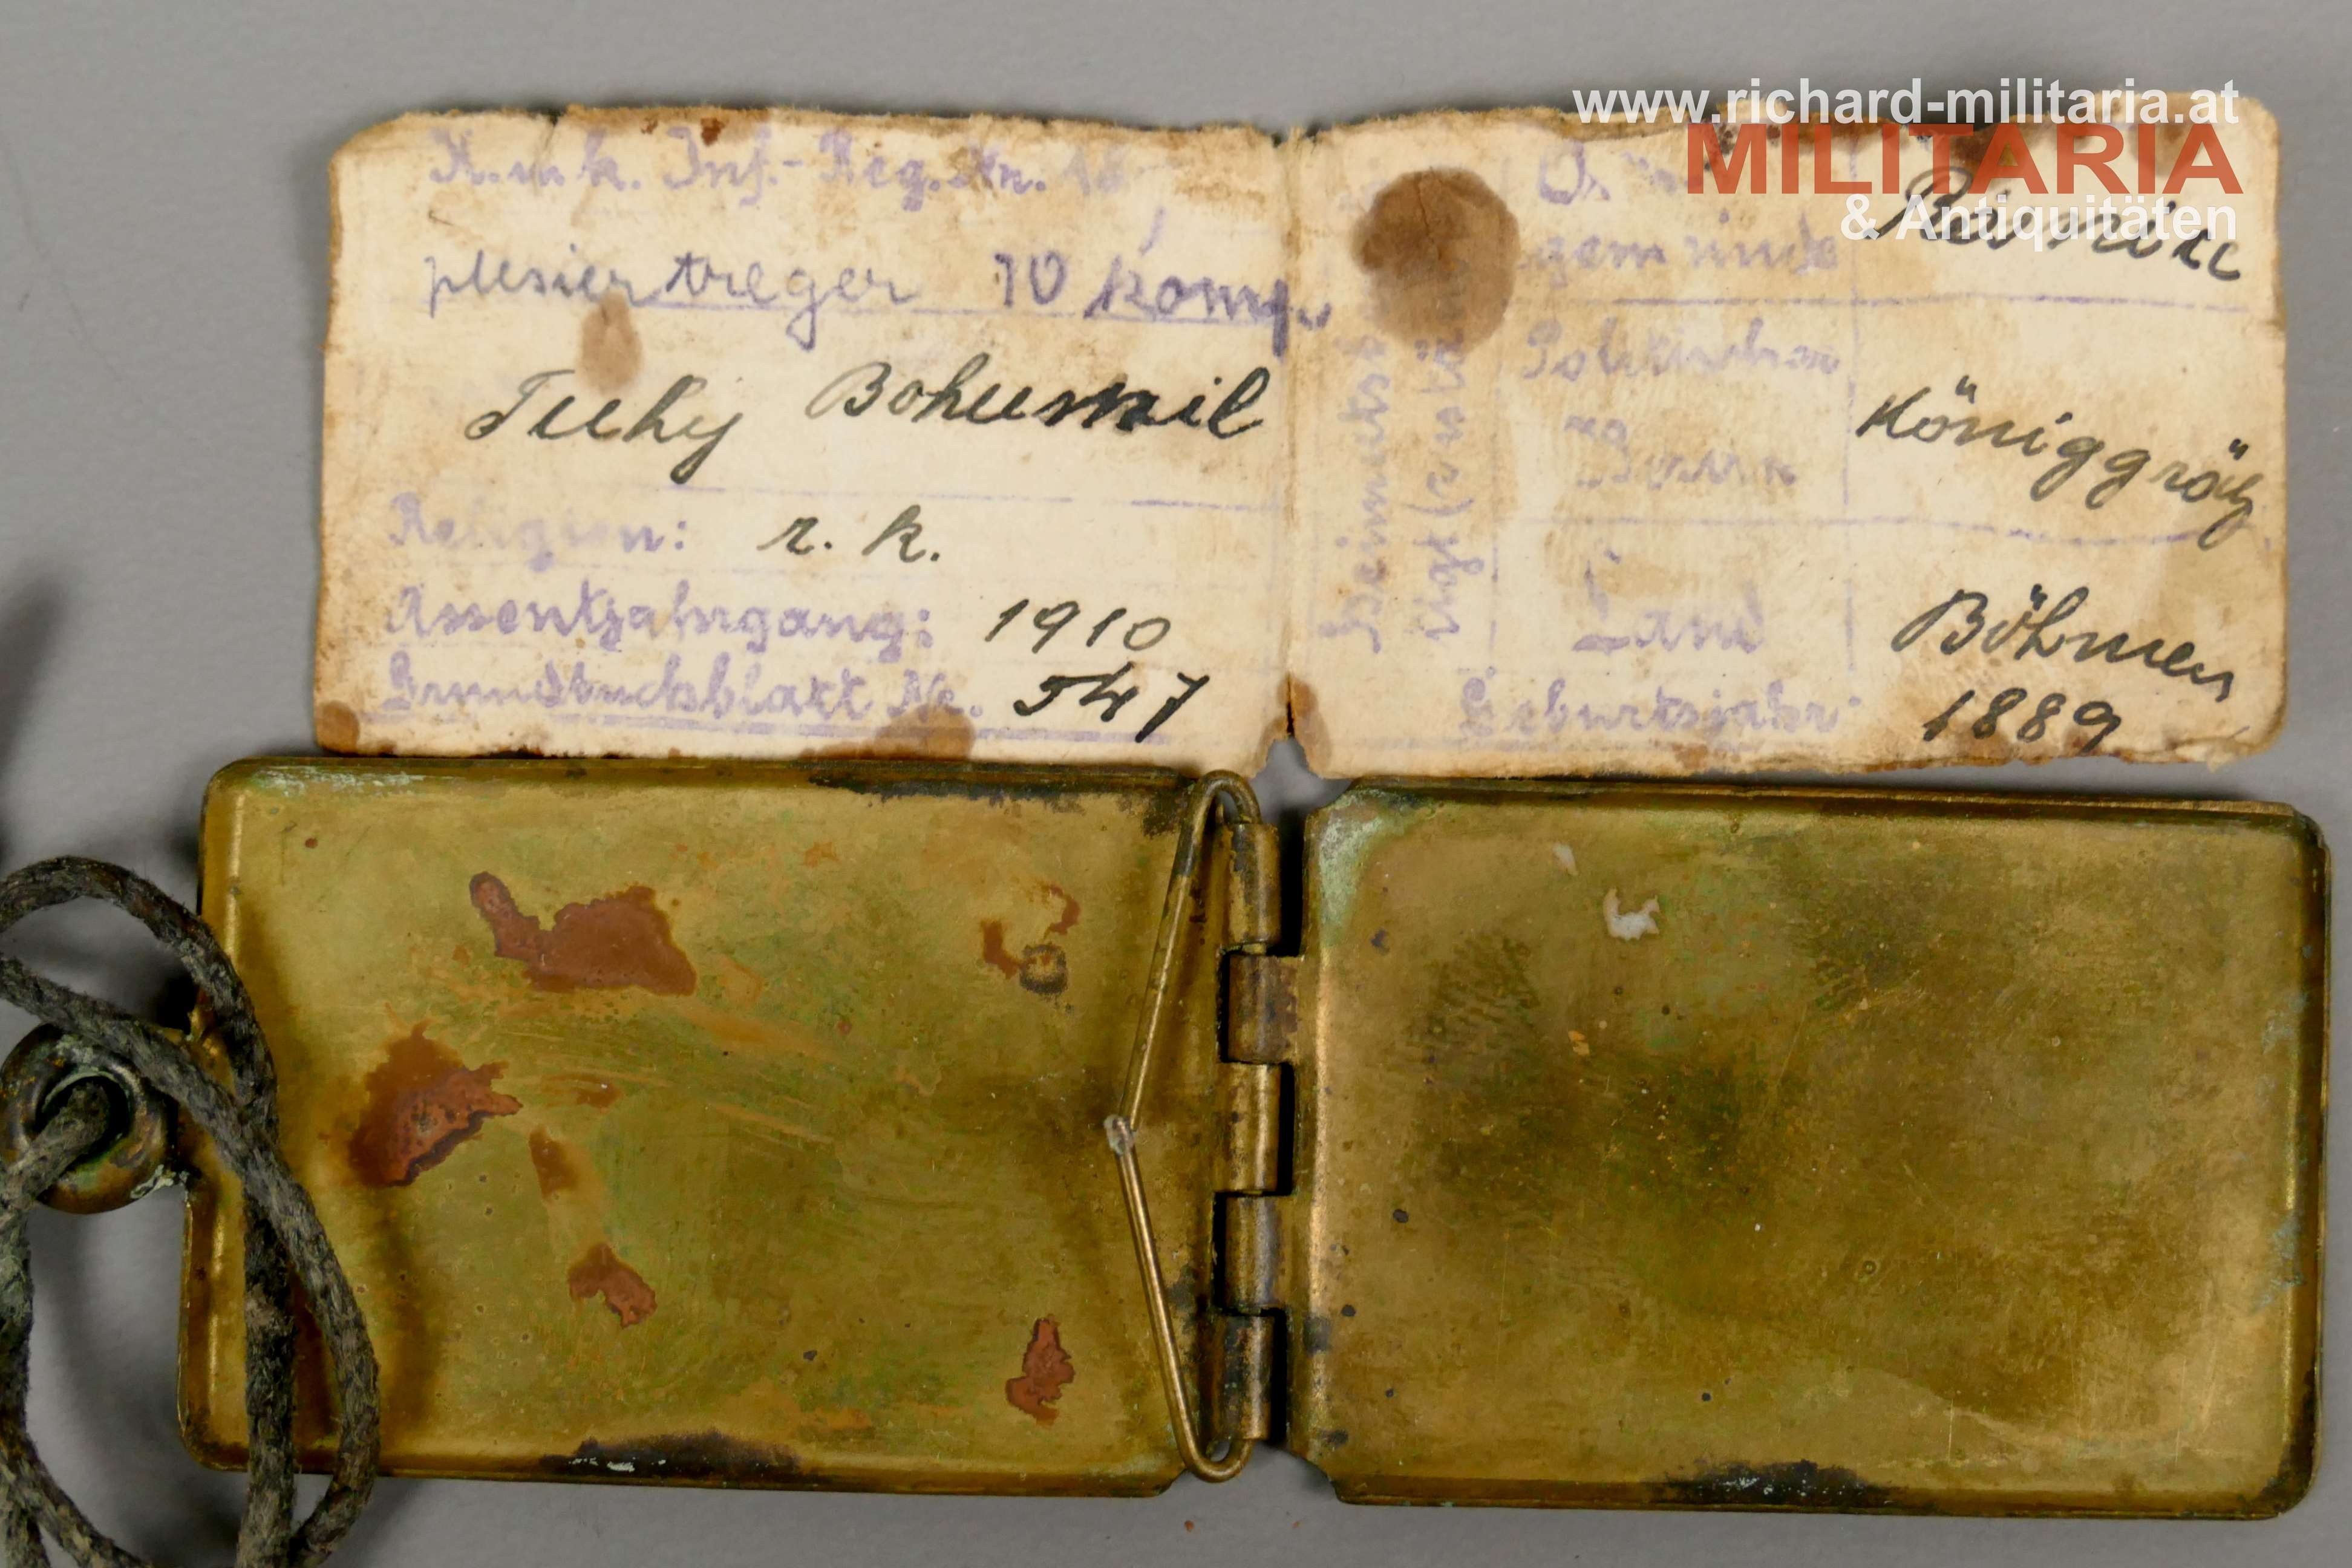 www.richard-militaria.at
MILITARIA
& Antiquitäten
K.u.k. Inf.-Reg. Nr. 18
plesiertreger 10 komp.
Tuhy Bohumil
Religion: r. k.
Assentjahrgang: 1910
Grundbuchsblatt Nr. 547
Heimats
gemeinde
Politischer
Bezirk Königgrätz
Land Böhmen
Geburtsjahr: 1889